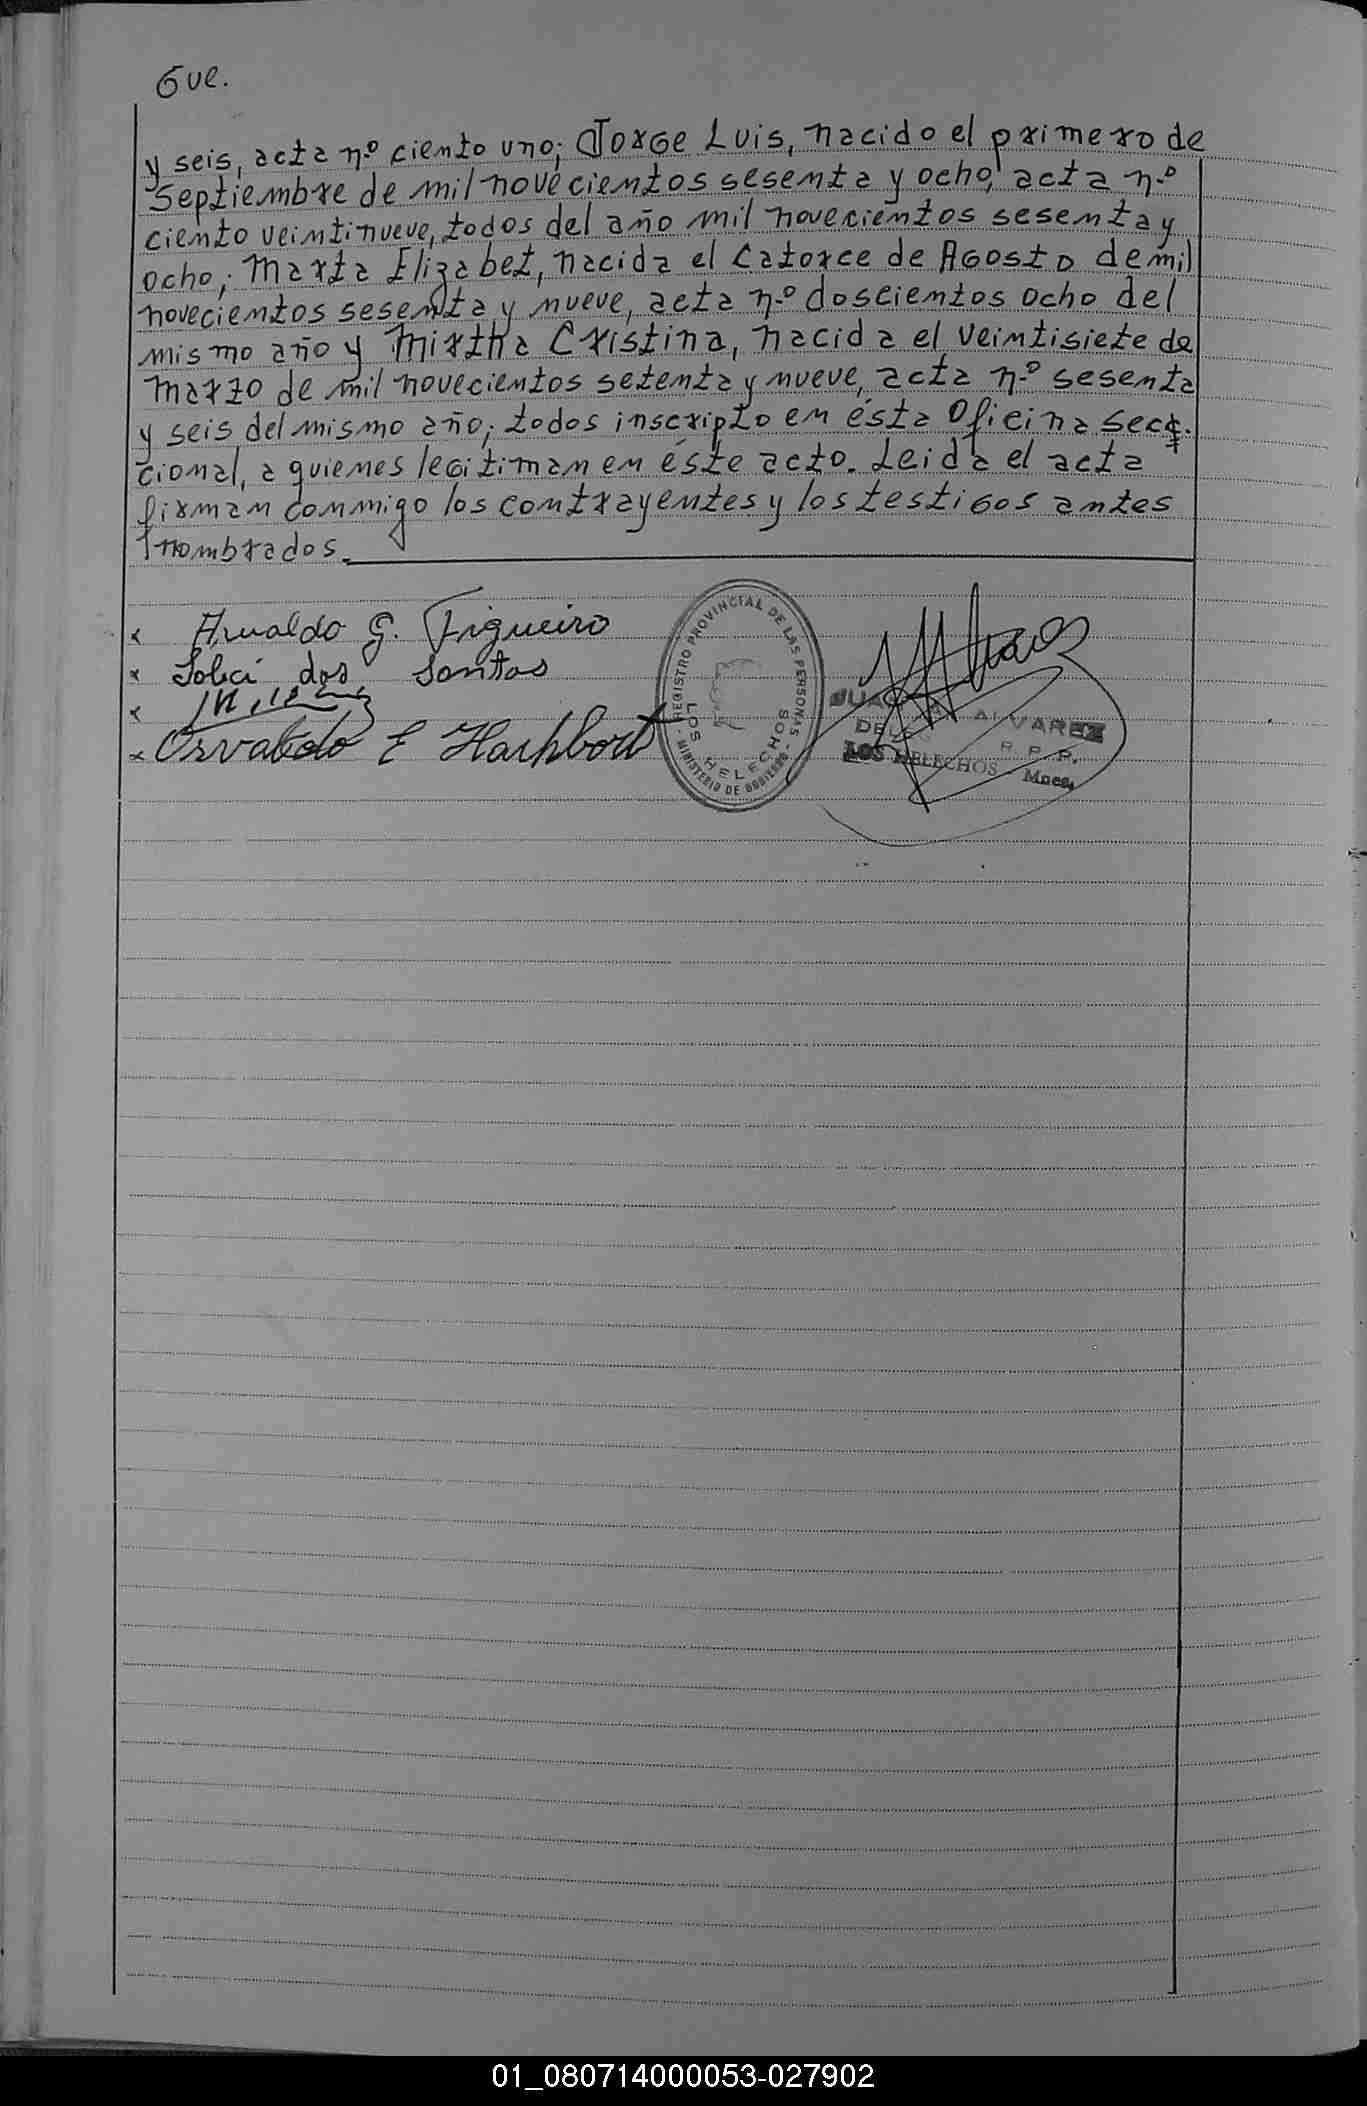 6 ve.
y seis, acta n.º ciento uno; Jorge Luis, nacido el primero de
Septiembre de mil novecientos sesenta y ocho, acta n.º
ciento veintinueve, todos del año mil novecientos sesenta y
ocho; Marta Elizabet, nacida el Catorce de Agosto de mil
novecientos sesenta y nueve, acta n.º doscientos ocho del
mismo año y Mirtha Cristina, nacida el veintisiete de
Marzo de mil novecientos setenta y nueve, acta n.º sesenta
y seis del mismo año; todos inscripto en ésta Oficina Sec
cional, a quienes legitiman en éste acto. Leida el acta
firman conmigo los contrayentes y los testigos antes
nombrados.
x Arnaldo G. Figueiro
x dos Santos
x
x Osvaldo E
REGISTRO PROVINCIAL DE LAS PERSONAS
- MINISTERIO DE GOBIERNO -
LOS HELECHOS
ALVAREZ
R. P. P.
LOS HELECHOS - Mnes.
01_080714000053-027902